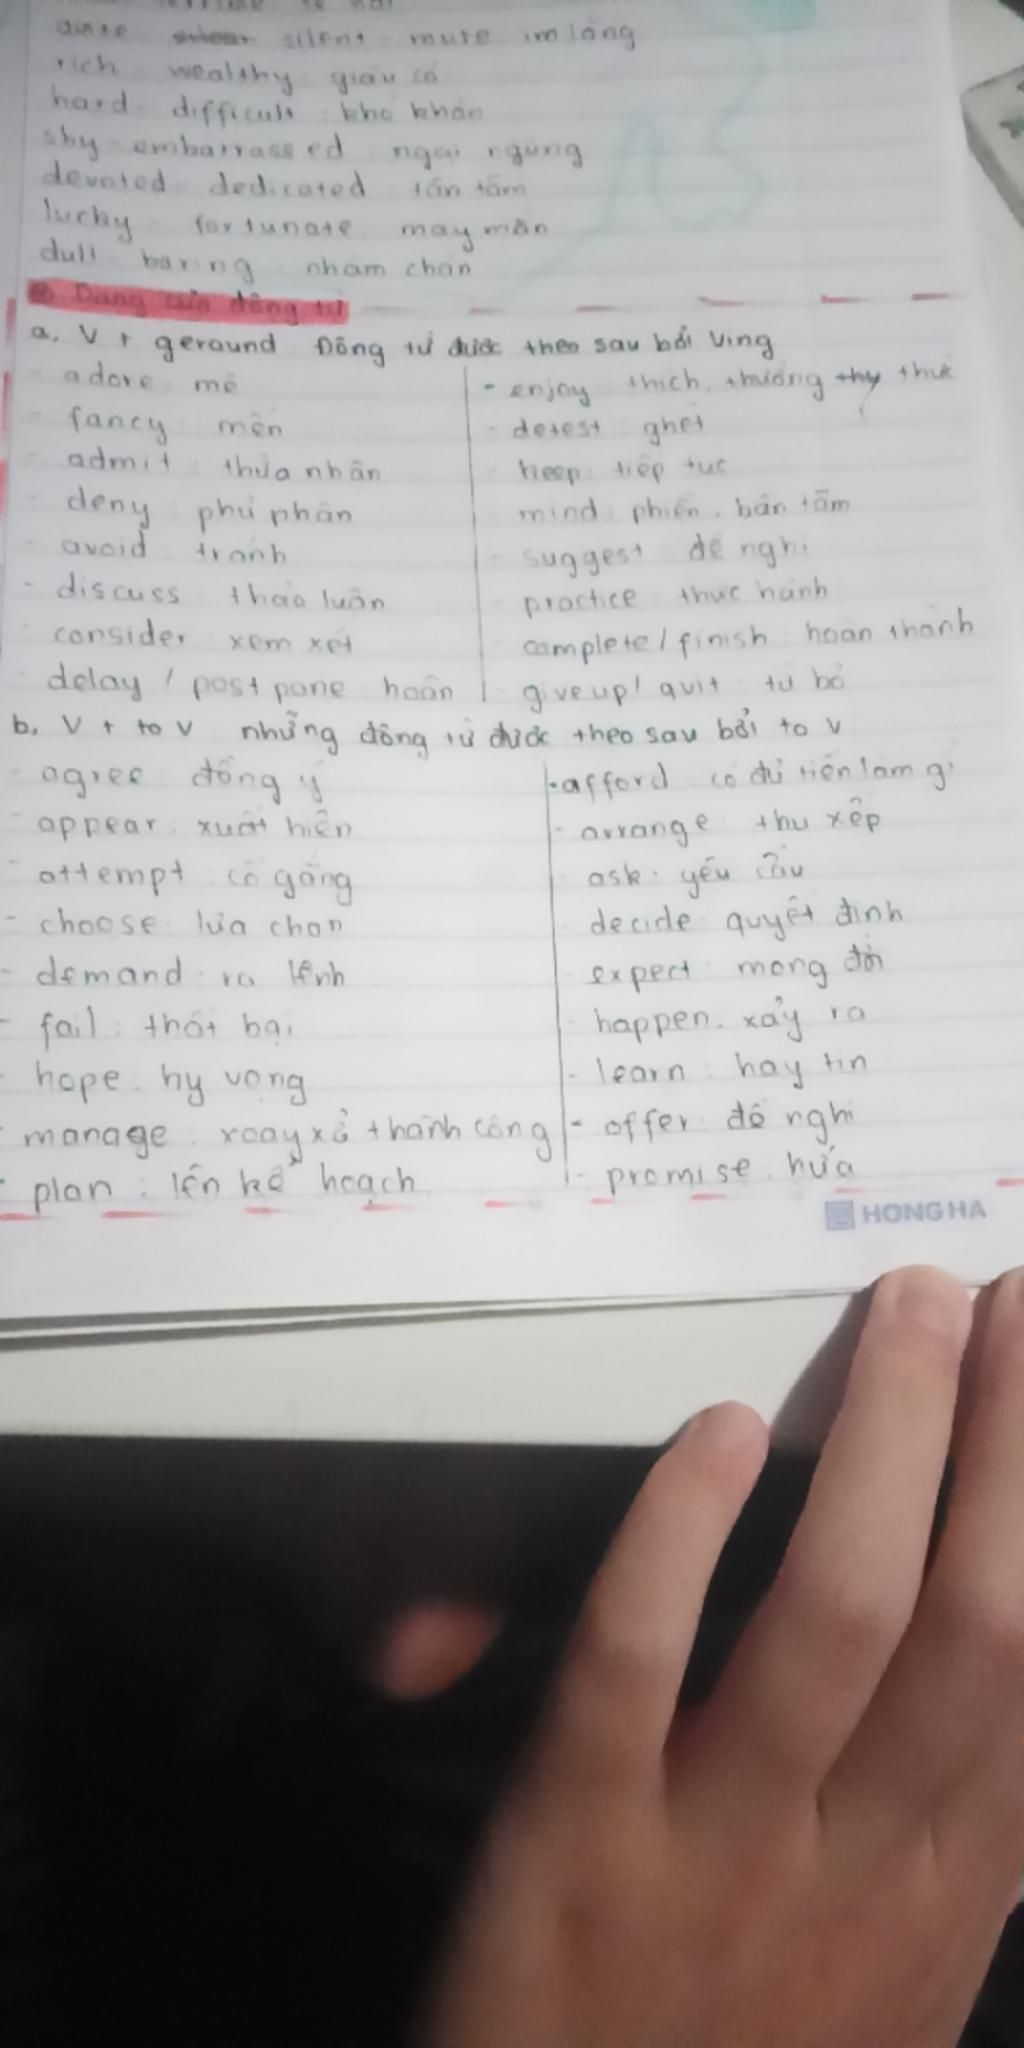 silent mute im lặng
rich wealthy giàu có
hard difficult : khó khăn
shy embarrassed ngại ngùng
devoted dedicated tận tâm
lucky fortunate may mắn
dull boring nhàm chán
Dạng của động từ
a, V + geraund Động từ được theo sau bởi Ving
adore : mê
- enjoy thích, thưởng thức
- fancy mến
- detest ghét
- admit : thừa nhận
- keep : tiếp tục
- deny phủ phận
- mind : phiền, bận tâm
- avoid tránh
- suggest đề nghị
- discuss thảo luận
- practice thực hành
- consider xem xét
complete / finish : hoàn thành
- delay / postpone : hoãn
give up / quit : từ bỏ
b, V + to V những động từ được theo sau bởi to V
- agree đồng ý
- afford có đủ tiền làm gì
- appear : xuất hiện
- arrange thu xếp
- attempt : cố gắng
ask : yêu cầu
- choose : lựa chọn
decide : quyết định
- demand : ra lệnh
expect : mong đợi
- fail : thất bại
- happen : xảy ra
- hope : hy vọng
- learn : hay tin
- manage : xoay xở thành công
- offer : đề nghị
- plan : lên kế hoạch
- promise : hứa
HONG HA